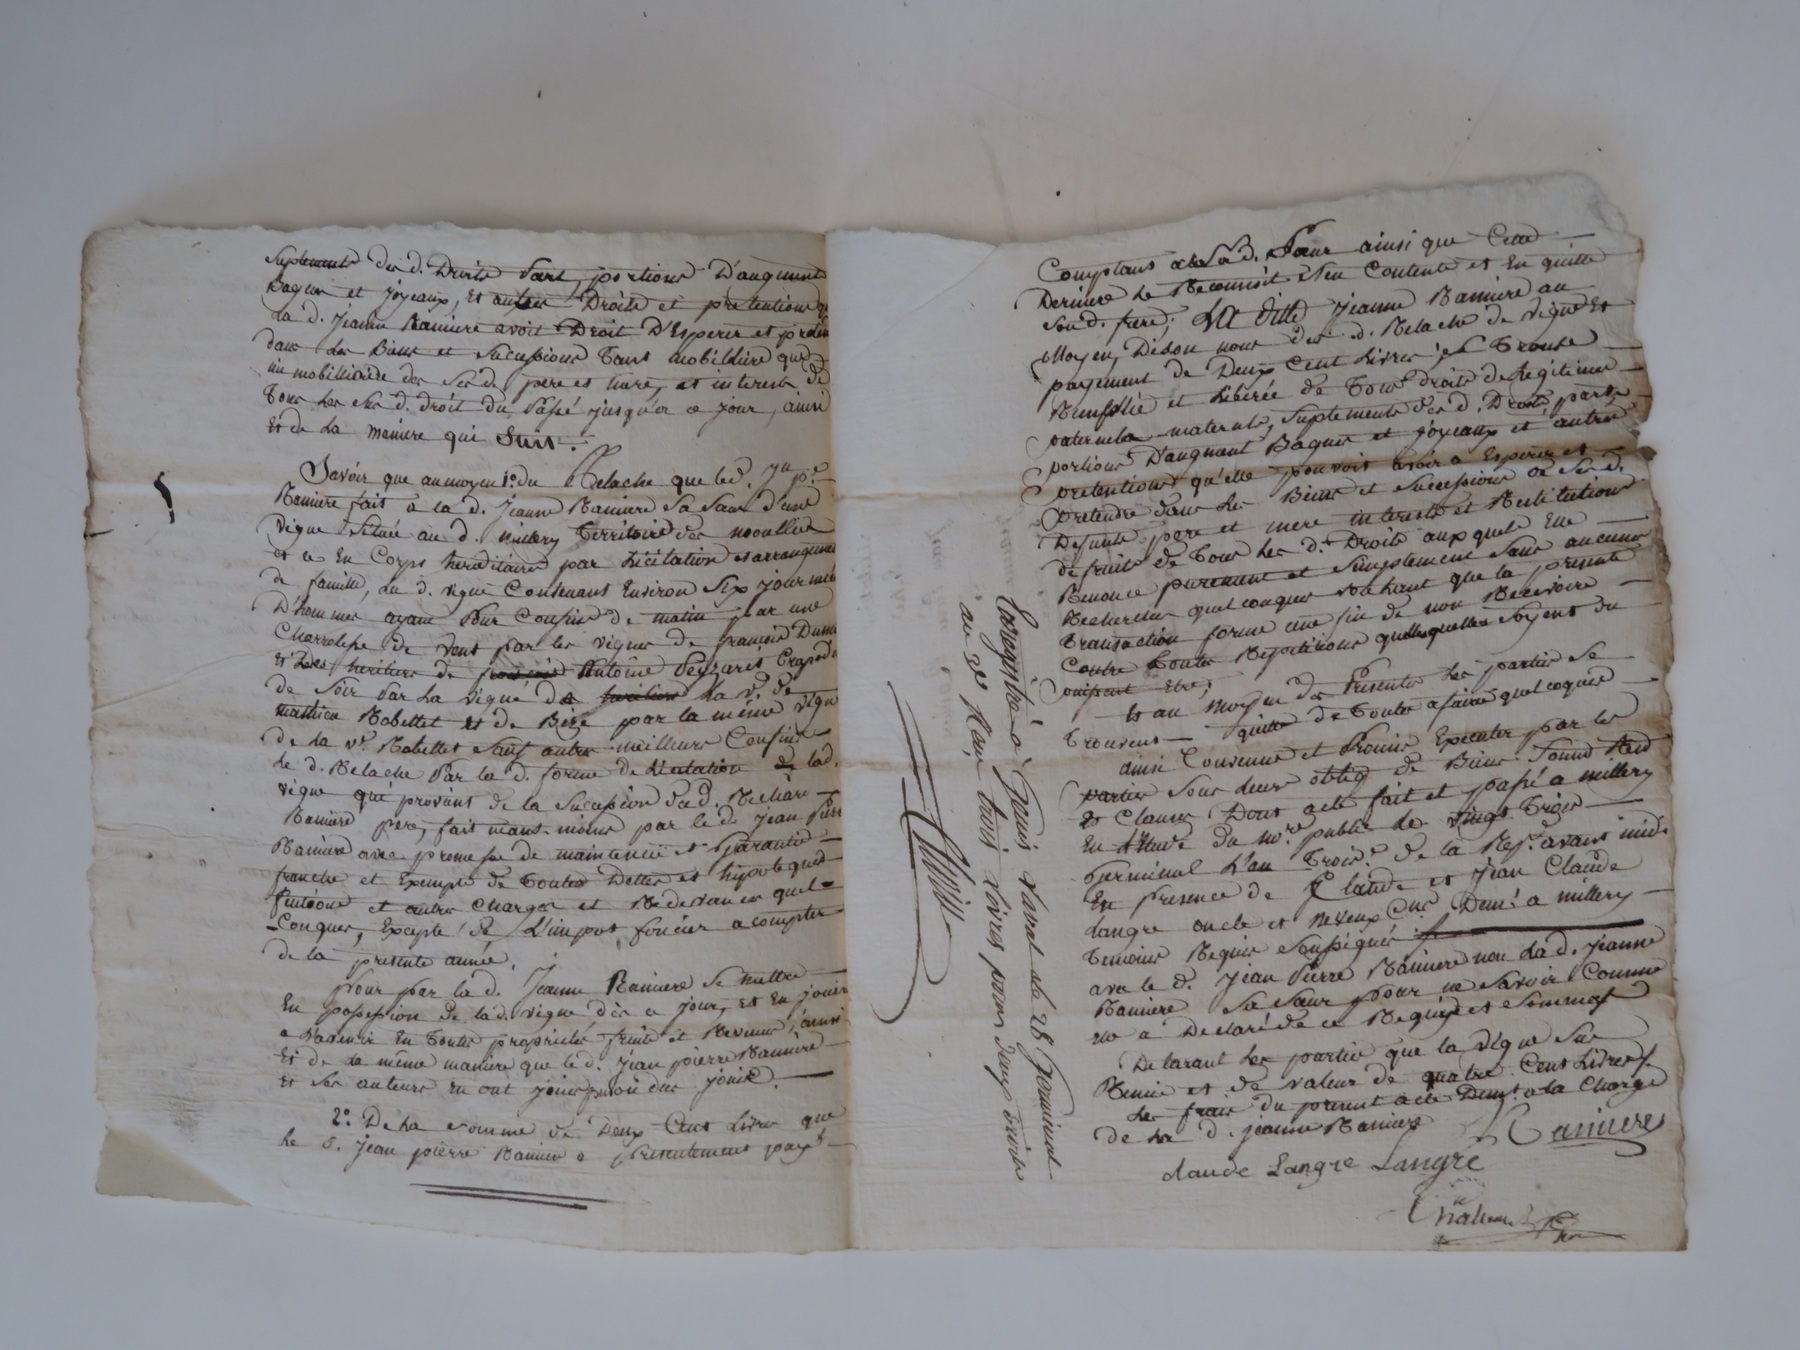 Suplements des d. Droits part, portions D'augment
Bagues et joyeaux, et autres Droits et pretentions que
la d. Jeanne Raniere avoit Droit D'Esperer et preten
dans les Biens et successions tant mobiliaire que
immobiliaire des ses d. pere et mere, et interets de
tous les ses d. droit du passé jusqu'a ce jour, ainsi
et de la maniere qui suit.
Savoir que au moyen 1o. du Relache que le d. Jn. pre.
Raniere fait a la d. Jeanne Raniere sa sœur d'une
vigne située au d. millery territoire des
et ce En Corps hereditaires par licitation et arrangement
de famille, la d. vigne Contenant Environ six journées
D'hommes ayant Pour Confins de matin par une
Charrolise de vent par les vignes de françois
et les heritiers de Antoine
de soir par la vigne de la ve. de
mathieu Robettet et de Bize par la même vigne
de la ve. Robettet sauf autres meilleurs Confins
le d. Relache par la d. forme de licitation de la d.
vigne qui provient de la succession du d.
Raniere pere, fait neant-moins par le d. Jean Pierre
Raniere avec promesse de maintenue et garantie
franche et Exempte de toutes Dettes et hipoteques
et autres charges et Redevances quel-
Conques, Excepté de L'impot foncier a compter
de la presente année,
Pour par la d. Jeanne Raniere se mettre
En possession de la d. vigne dès ce jour, et En jouir
a l'avenir En toutes proprietés fruits et Revenus, ainsi
et de la même maniere que le d. Jean pierre Raniere
et ses auteurs en ont joui ou du jouir.
2o. De la somme de Deux Cent Livres que
le d. Jean pierre Raniere a presentement payé
Enregistré à Givors Laval le 28 Germinal
an 3e Reçu trois livres pour deux droits
Comptant a la d. sœur ainsi que Cette
Derniere le Reconnoit s'en Contente et En quitte
son d. frere; La ditte Jeanne Raniere au
Moyen Disons nous des d. Relache de vigne et
payement de Deux Cent Livres se trouve
Remplie et Libérée de tous droits de Légitimes
paternels maternels, suplements des d. Droits parts
portions D'augment Bagues et joyeaux et autres
pretentions qu'elle pouvoit avoir a Esperer et
pretendre dans les Biens et successions de ses d.
Defunts pere et mere interets et Restitutions
de fruits de tous les d. Droits auxquels Elle
Renonce purement et simplement sans aucunes
Recherches quelconques voulant que la presente
transaction forme une fin de non Recevoire
Contre toutes Repetitions quelles quelles soyent ou
puissent Etre;
Et au moyen des Presentes les parties se
trouvent quitte de toutes afaires quelcoques
ainsi Convenu et Promis Executer par les
parties sous leurs oblig de Biens soumis Red
et Clauses Dont acte fait et passé a millery
En Etude du nore. public le vingt trois
Germinal L'an trois. de la Rep. avant midi
En Presence de Claude et Jean Claude
Langre oncle et neveux Cur. Demt. a millery
temoins Requis soussignés
avec le d. Jean Pierre Raniere non la d. Jeanne
Raniere sa sœur pour ne savoir Comme
Elle a Declaré de ce Requise et sommée
Declarant les parties que la vigne sus
Remise est de valeur de quatre Cent Livres
les frais du present acte Demt. a la charge
de la d. Jeanne Raniere
Raniere
claude Langre Langre